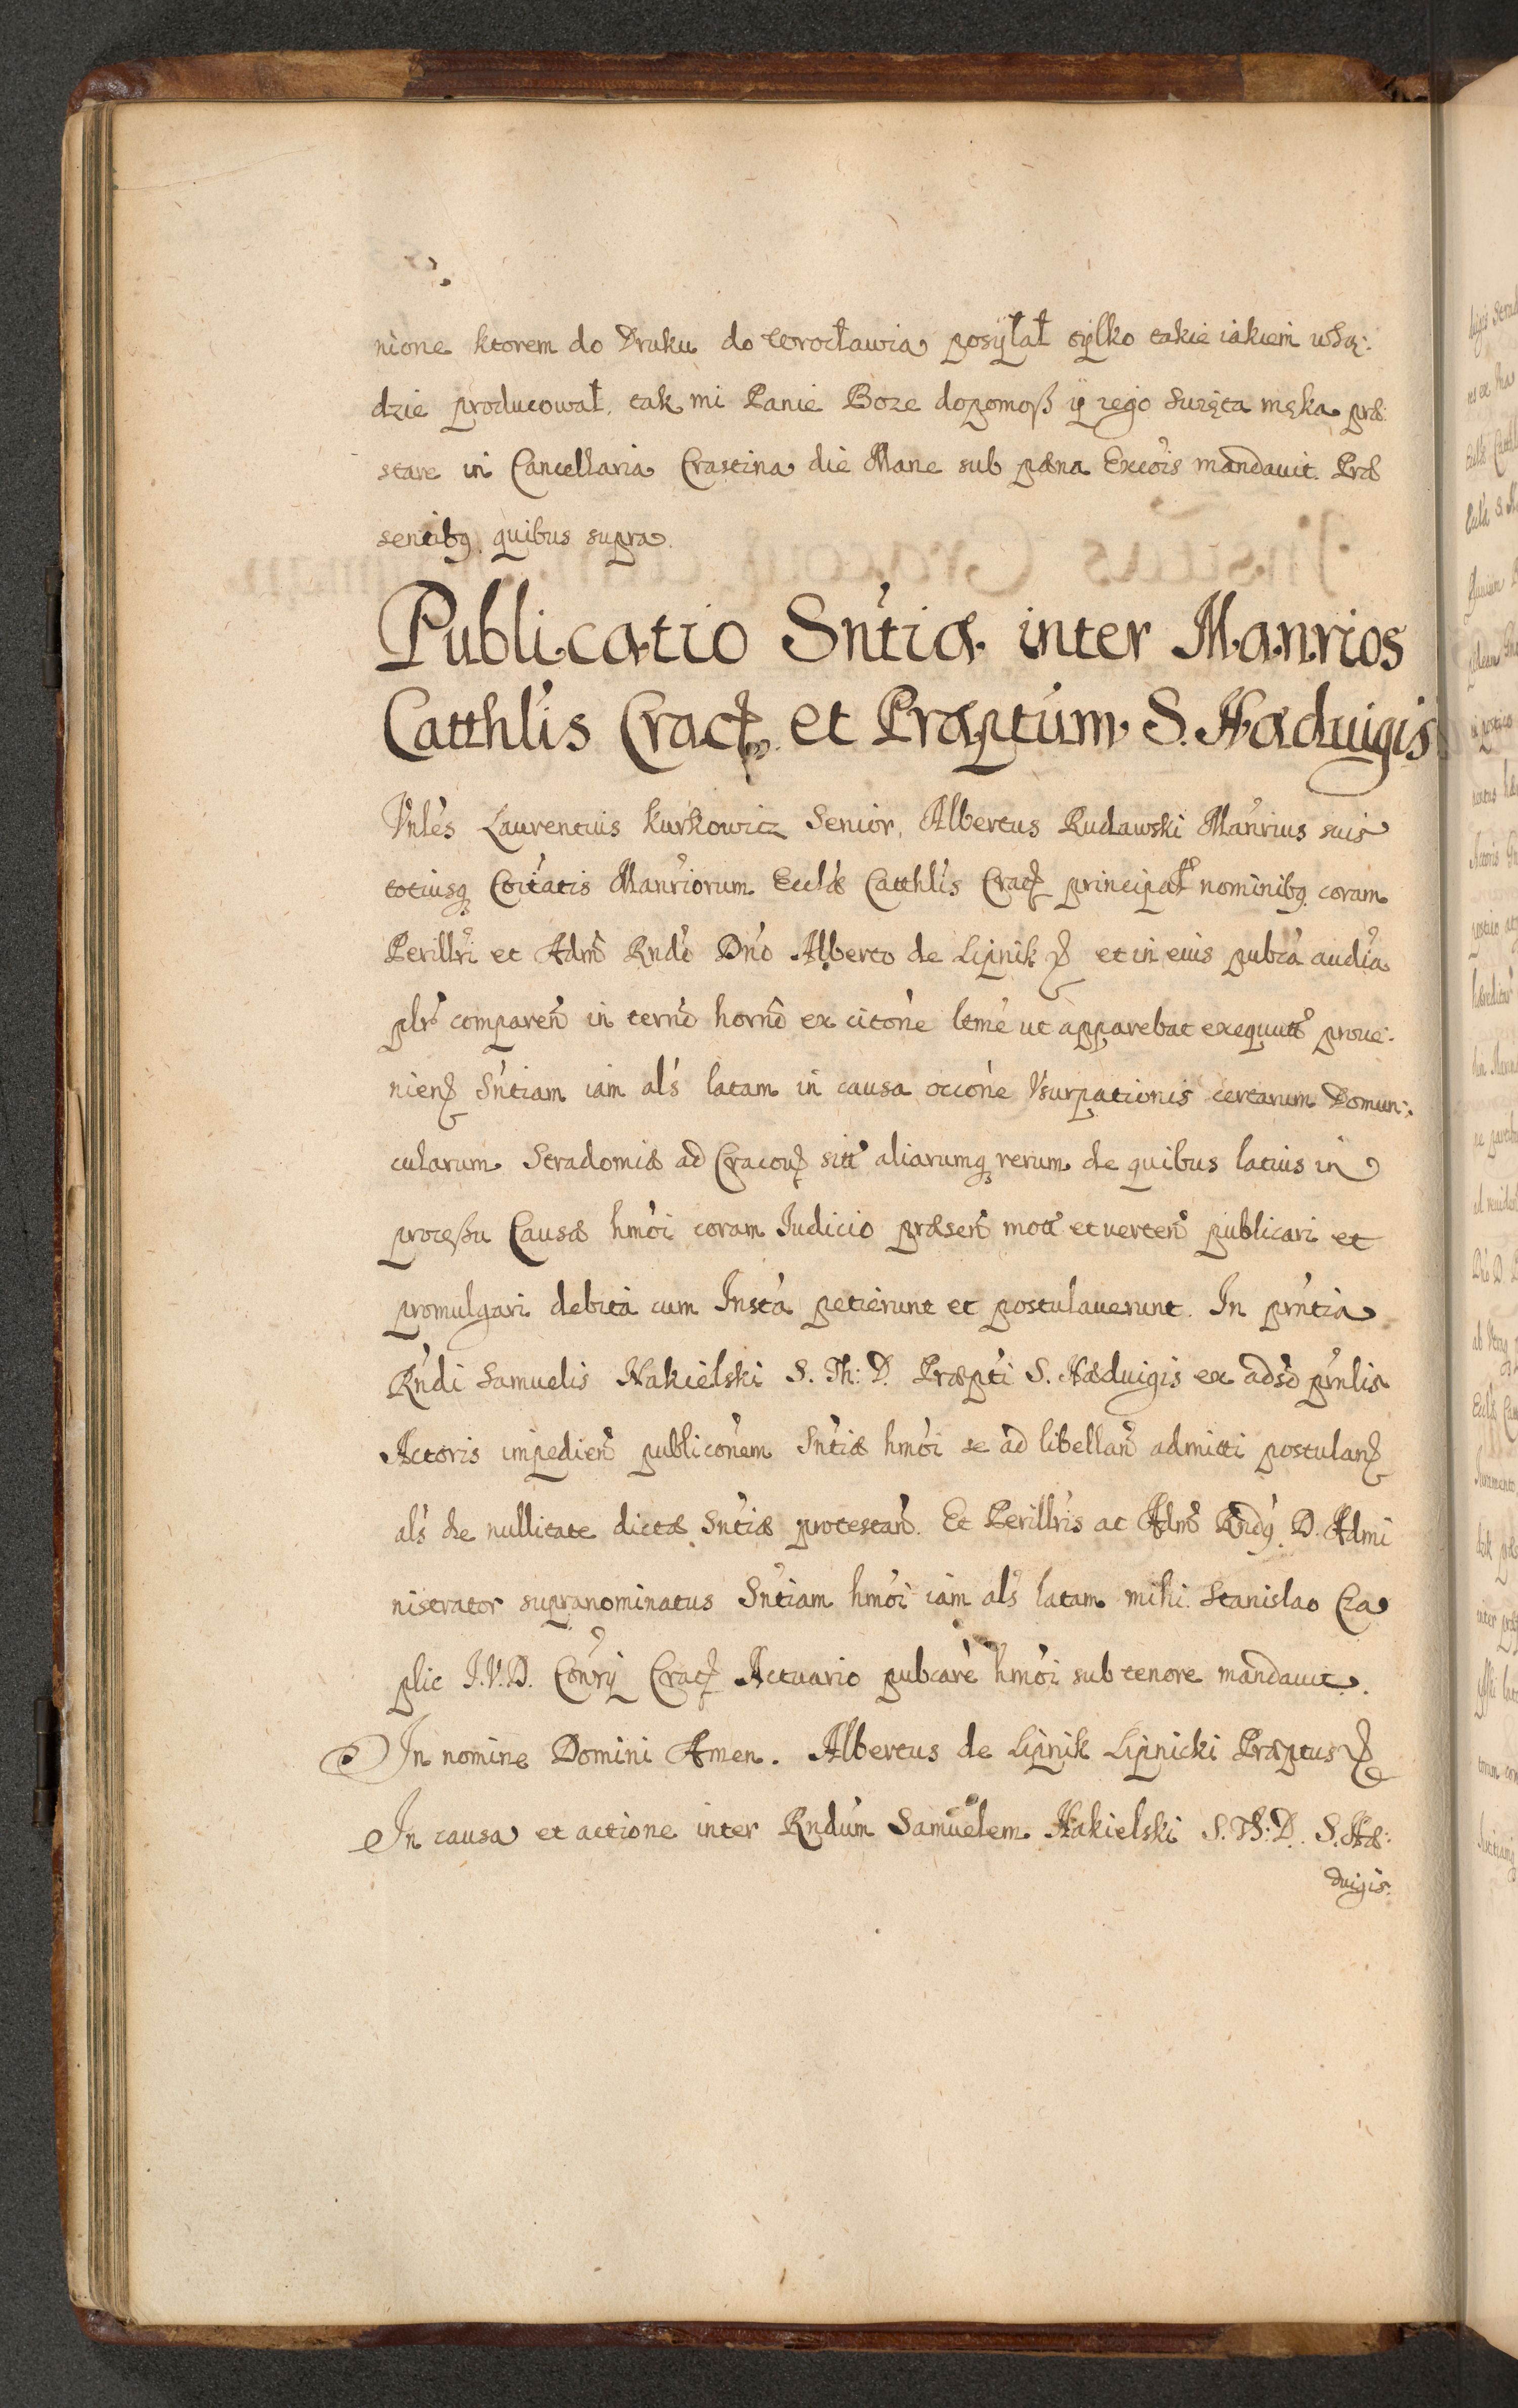 nione ktorem do Druku do Wrocławia posyłał tylko takie iakiem w Są:
dzie producował, tak mi Panie Boze dopomoß y iego Swięta męka præ:
stare in Cancellaria Crastina die Mane sub pæna Excõis mandauit. Præ
sentibq. quibus supra.
Publicatio Sntiæ inter Manrios
Catthlis Crac et Præptum S. Hæduigis
Vnles Laurentius Kurkowicz Senior, Albertus Rudawski Manrius suis
totiusq Coitatis Manriorum Ecclæ Catthlis Crac principal nominibq. coram
Perillri et Adm Rndo Dno Alberto de Lipnik et in eius pubca audia
plr comparen in termo horno ex citone ltme ut apparebat exequutt proue:
nien Sntiam iam als latam in causa occone Vsurpationis certarum Domun:
cularum Stradomiæ ad Cracou sitt aliarumq rerum de quibus latius in
proceßu Causæ hmoi coram Iudicio præsen mott et verten publicari et
promulgari debita cum Insta petierunt et postulauerunt. In prntia
Rndi Samuelis Nakielski S. Th: D. Præpti S. Hæduigis ex adso prnlis
Actoris impedien publiconem Sntiæ hmoi se ad libellan admitti postulan
als de nullitate dictæ Sntiæ protestan. Et Perillris ac Adm Rndq. D. Admi
nistrator supranominatus Sntiam hmoi iam als latam mihi Stanislao Cza
plic I.V.D. Conrij Crac Actuario pubcare hmoi sub tenore mandauit.
In nomine Domini Amen. Albertus de Lipnik Lipnicki Præptus
In causa et actione inter Rndum Samuelem Nakielski S. Th: D. S. Hæ:
duigis